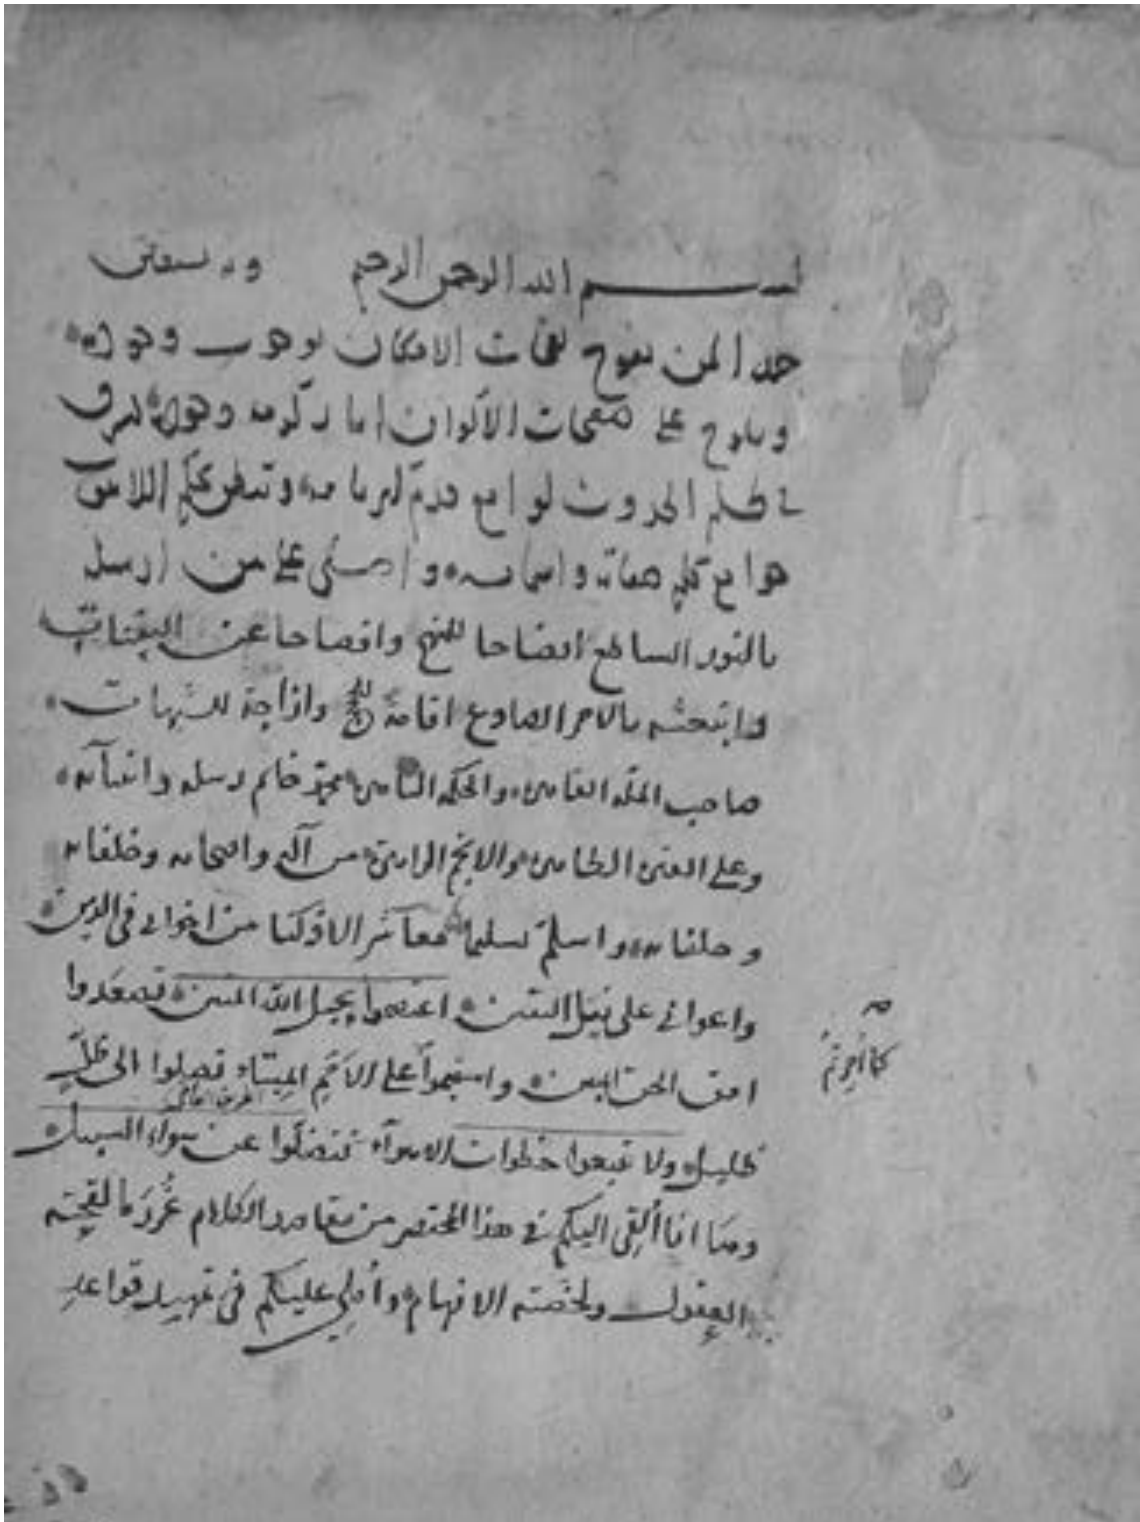 بسم الله الرحمن الرحيم وبه نستعين
حمدا لمن تفوح نفحات الامكان بوجوب وجوده
ويلوح على صفحات الاكوان
في ظلم الحدوث لوامع قدم
جوامع كلم صفاته واسمائه واصلى على من ارسل
بالنور الساطع ايضاحا للنهج وافصاحا عن البينات
وابتعثه بالامر الصادع اقامة للحجج وازاحة للشبهات
صاحب الملة القاهرة والحكمة محمد خاتم رسله وانبيآئه
وعلى العترة الطاهرة والانجم الزاهرة من آله واصحابه وخلفائه
وحلفائه واسلم تسليما معاشر الاذكيا من اخواني في الدين
واعواني على نيل اليقين اعتصموا بحبل الله المتين تصعدوا
افق الحق المبين واستقيموا على الامم الميتاء تصلوا الى ظل
ظليل ولا تتبعوا خطوات الاهوآء فتضلوا عن سواء السبيل
وها انا ألقي اليكم في هذا المختصر من مقاصد الكلام غرر ما لقحته
العقول ولخصته الافهام وأملي عليكم في تمهيد قواعد
كما أمرتم